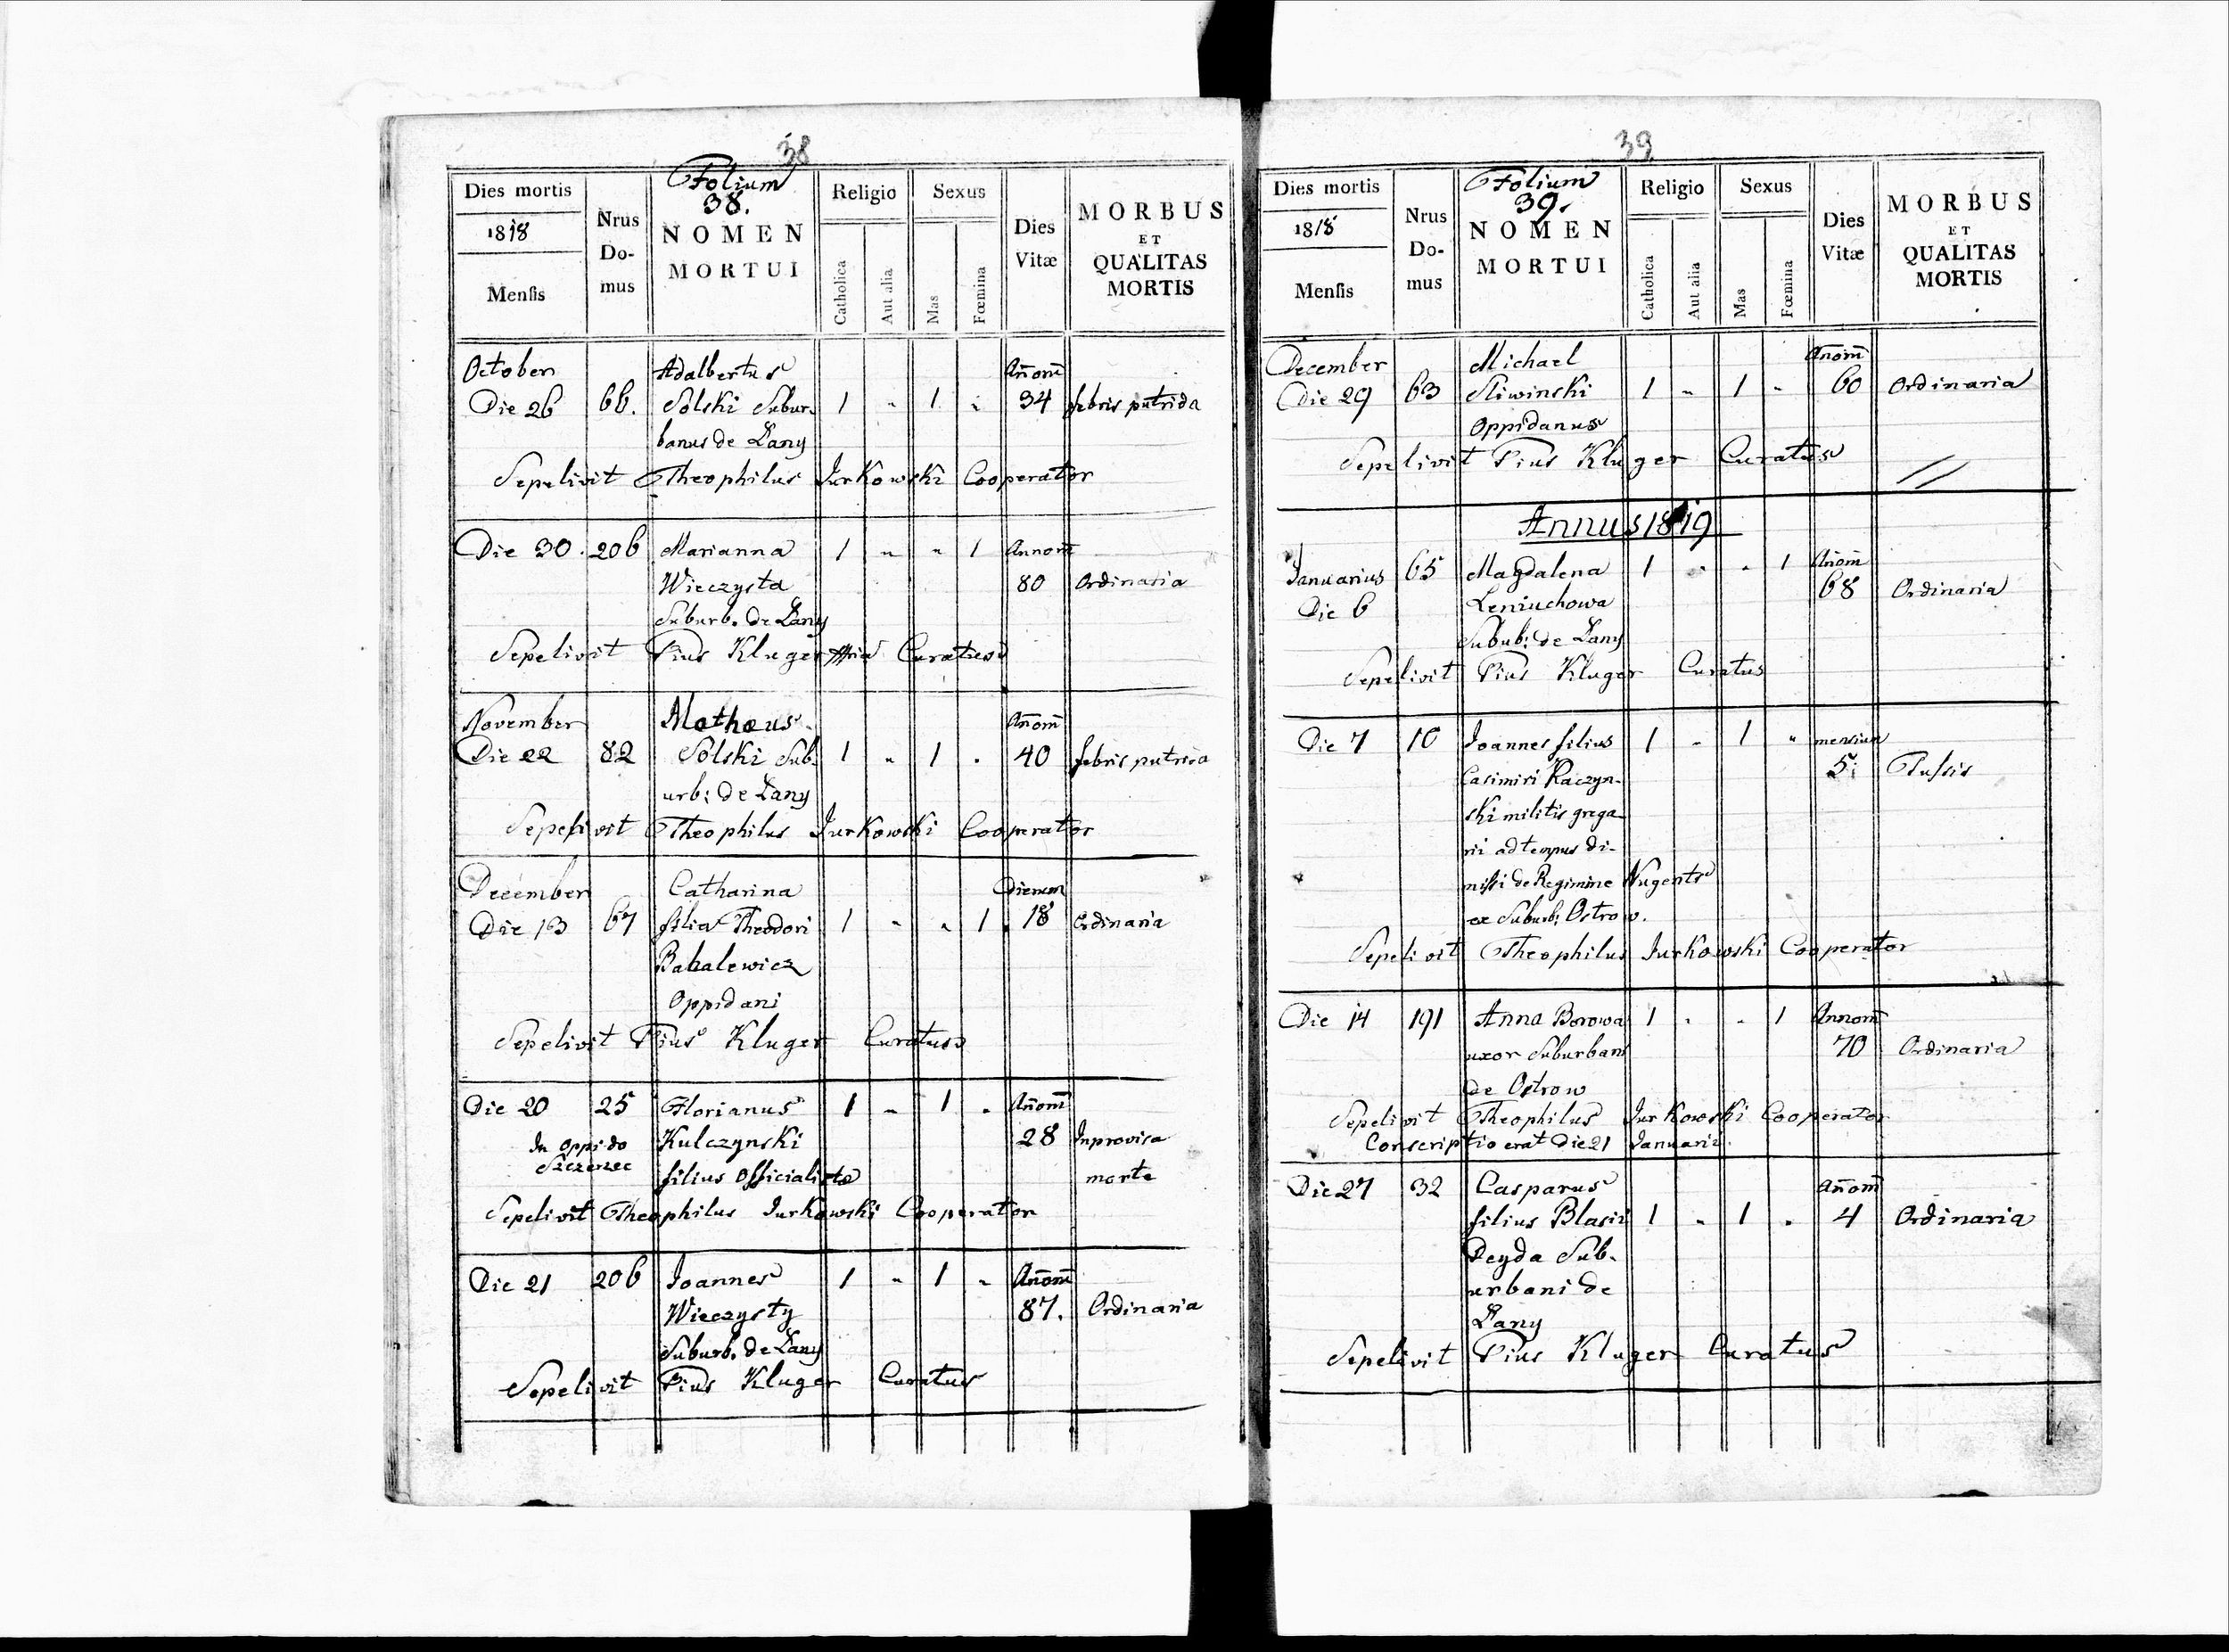 38
Folium
38.
Dies mortis
1818
Mensis
Nrus
Do-
mus
NOMEN
MORTUI
Religio
Catholica
Aut alia
Sexus
Mas
Fœmina
Dies
Vitæ
MORBUS
ET
QUALITAS
MORTIS
October Adalbertus Añorũ
Die 26 66. Solski Subur- 1 " 1 " 34 febris putrida
banus de Łany
Sepelivit Theophilus Jurkowski Cooperator
Die 30. 206 Marianna 1 " " 1 Annorũ
Wieczysta 80 Ordinaria
Suburb. de Łany
Sepelivit Pius Kluger Curatus
November Matheus Añorũ
Die 22 82 Solski Sub- 1 " 1 " 40 febris putrida
urb: de Łany
Sepelivit Theophilus Jurkowski Cooperator
December Catharina Dierum
Die 13 67 filia Theodori 1 " " 1 18 Ordinaria
Bahalewicz
Oppidani
Sepelivit Pius Kluger Curatus
Die 20 25 Florianus 1 " 1 " Añorũ
In oppido Kulczynski 28 Inprovisa
Szczerzec
filius Officialistæ morte
Sepelivit Theophilus Jurkowski Cooperator
Die 21 206 Joannes 1 " 1 " Añorũ
Wieczysty 87. Ordinaria
Suburb. de Łany
Sepelivit Pius Kluger Curatus
39
Folium
39.
Dies mortis
1818
Mensis
Nrus
Do-
mus
NOMEN
MORTUI
Religio
Catholica
Aut alia
Sexus
Mas
Fœmina
Dies
Vitæ
MORBUS
ET
QUALITAS
MORTIS
December Michael Añorũ
Die 29 63 Sliwinski 1 " 1 " 60 Ordinaria
Oppidanus
Sepelivit Pius Kluger Curatus
Annus 1819
Januarius 65 Magdalena 1 " " 1 Añorũ
Die 6 Leniuchowa 68 Ordinaria
Subub: de Łany
Sepelivit Pius Kluger Curatus
Die 7 10 Joannes filius 1 " 1 " mensium
Casimiri Raczyn- 5: Tussis
ski militis grega-
rii ad tempus di-
missi de Regimine Nugents
ex Suburb: Ostrow.
Sepelivit Theophilus Jurkowski Cooperator
Die 14 191 Anna Borowa 1 " " 1 Annorũ
uxor Suburbani 70 Ordinaria
de Ostrow
Sepelivit Theophilus Jurkowski Cooperator
Conscriptio erat Die 21 Januarii.
Die 27 32 Casparus Añorũ
filius Blasii 1 " 1 " 4 Ordinaria
Deyda Sub-
urbani de
Łany
Sepelivit Pius Kluger Curatus